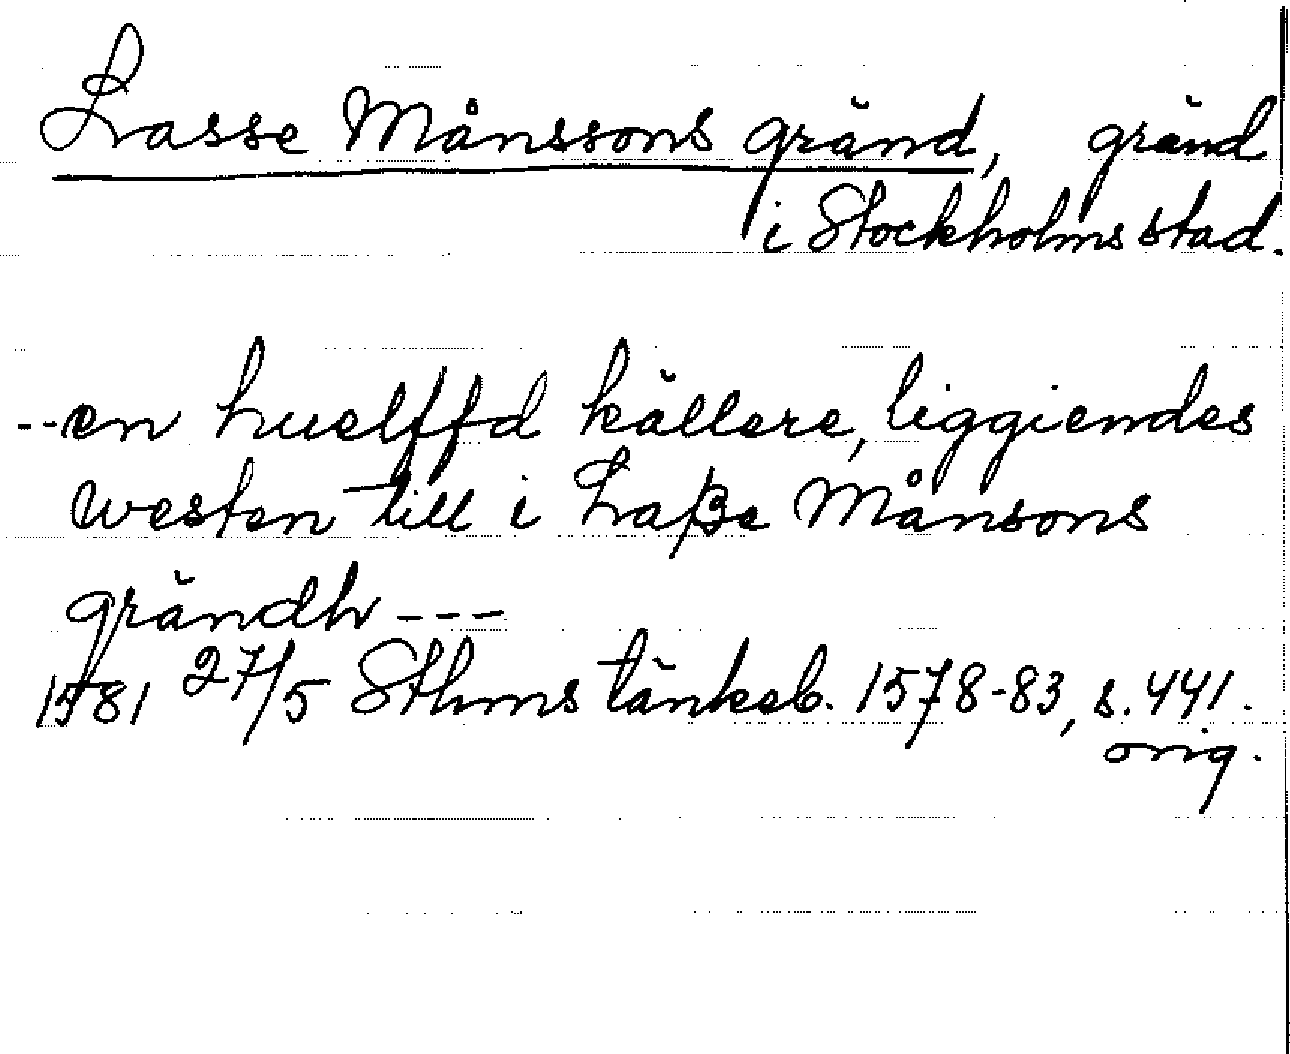 Lasse Månssons gränd, gränd
i Stockholms stad.
--en huelffd källere, liggiendes
westen till i Laße Månsons
grändh ---
1581 27/5 Sthms tänkeb. 1578-83, s. 441.
orig.